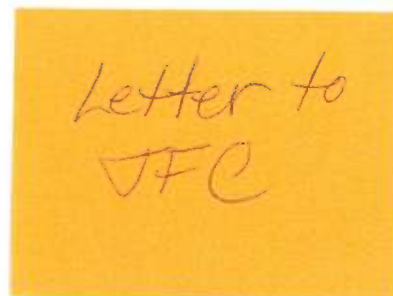 Letter to
JFC